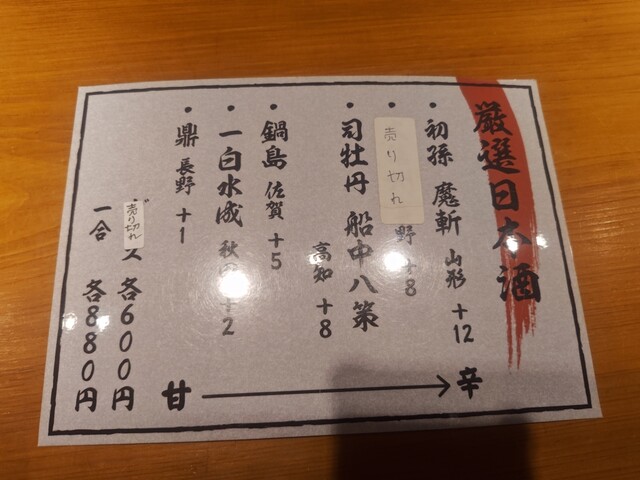 厳選日本酒
・初孫 魔斬 山形 +12
・売り切れ 野 +8
・司牡丹 船中八策 高知 +8
・鍋島 佐賀 +5
・一白水成 秋田 +2
・鼎 長野 +1
甘 → 辛
売り切れ ス 各600円
一合 各880円